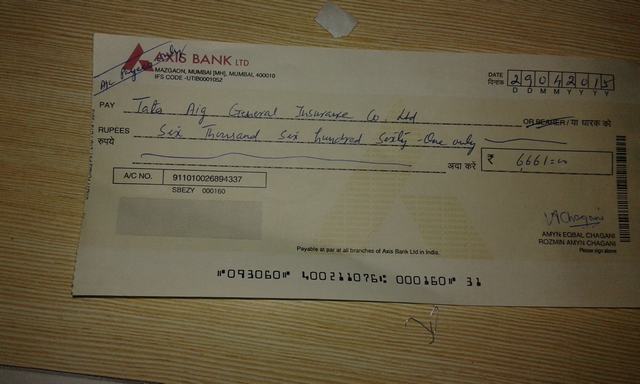 A/c Payee only
AXIS BANK LTD
MAZGAON, MUMBAI [MH], MUMBAI, 400010
IFS CODE -UTIB0001052
DATE 29042015
दिनांक D D M M Y Y Y Y
PAY Tata Aig General Insurance Co. Ltd
OR BEARER / या धारक को
RUPEES Six Thousand Six hundred Sixty-One only
रुपये
अदा करें ₹ 6,661=00
A/C NO. 911010026894337
SBEZY 000160
VAChagani
AMYN EQBAL CHAGANI
ROZMIN AMYN CHAGANI
Please sign above
Payable at par at all branches of Axis Bank Ltd in India.
⑈093060⑈ 400211076⑆ 000160⑈ 31